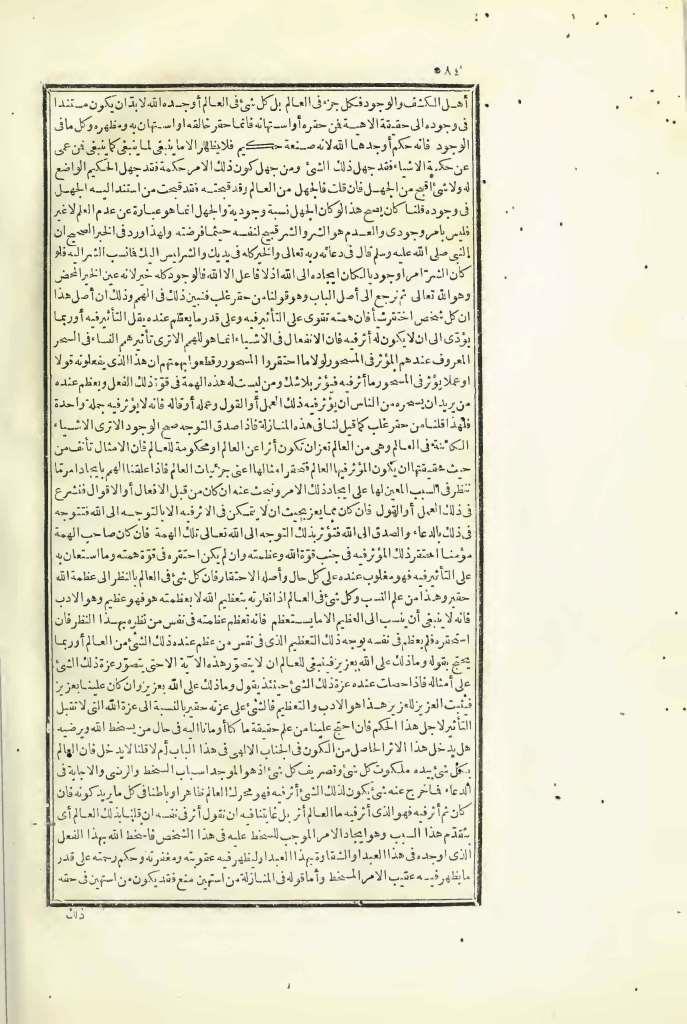 ٥٨٤
أهل الكشف والوجود فكل جزء فى العالم بل كل شئ فى العالم أوجده الله لا بد أن يكون مستندا
فى وجوده الى حقيقة الاهية فمن حقره أو استهانه فانما حقر خالقه او استهان به ومظهره وكل ما فى
الوجود فانه حكم أوجدها الله لانه صنعة حكيم فلا يظهر الا ما ينبغى لما ينبغى كما ينبغى فمن عمى
عن حكمة الاشياء فقد جهل ذلك الشئ ومن جهل كون ذلك الامر حكمة فقد جهل الحكيم الواضع
له ولا شئ أقبح من الجهل فان قلت فالجهل من العالم وقد قبحته فقد قبحت من استند اليه الجهل
فى وجوده قلنا كان يصح هذا لو كان الجهل نسبة وجودية والجهل انما هو عبارة عن عدم العلم لا غير
فليس بامر وجودى والعدم هو الشر والشر قبيح لنفسه حيثما فرضته ولهذا ورد فى الخبر الصحيح ان
النبى صلى الله عليه وسلم قال فى دعائه ربه تعالى والخير كله فى يديك والشر ليس اليك فما نسب الشر اليه فلو
كان الشر أمرا وجوديا لكان ايجاده الى الله اذ لا فاعل الا الله فالوجود كله خير لانه عين الخير المحض
وهو الله تعالى ثم نرجع الى أصل الباب وهو قولنا من حقر غلب فنبين ذلك فى الهمم وذلك ان أصل هذا
ان كل شخص احتقرت أفان همته تقوى على التأثير فيه وعلى قدر ما يعظم عنده يقل التأثير فيه أو ربما
يؤدى الى ان لا يكون له أثر فيه فان الانفعال فى الاشياء انما هو للهمم الا ترى تأثير همم النساء فى السحر
المعروف عندهم المؤثر فى المسحور لولا ما احتقروا المسحور وقطعوا بهمتهم ان هذا الذى يفعلونه قولا
او عملا يؤثر فى المسحور ما أثر فيه فيؤثر بلا شك ومن ليست له هذه الهمة فى قوة ذلك الفعل ويعظم عنده
من يريد ان يسحره من الناس ان يؤثر فيه ذلك العمل أو القول وعمله أو قاله فانه لا يؤثر فيه جملة واحدة
فلهذا قلنا من حقر غلب كما قيل لنا فى هذه المنازلة فاذا صدق التوجه صح الوجود الا ترى الاشياء
الكائنة فى العالم وهى من العالم تعز ان تكون أثرا عن العالم او محكومة للعالم فان الامثال تأنف من
حيث حقيقتها ان يكون المؤثر فيها العالم فتحقر امثالها اعنى جزئيات العالم فاذا علقنا الهمم بايجاد امر ما
ننظر فى السبب المعين لها على ايجاد ذلك الامر ونبحث عنه ان كان من قبل الافعال أو الاقوال فنشرع
فى ذلك العمل أو القول فان كان مما يعز بحيث ان لا يتمكن فى الاثر فيه الا بالتوجه الى الله فنتوجه
فى ذلك بالدعاء والصدق الى الله فتؤثر بذلك التوجه الى الله تعالى تلك الهمة فان كان صاحب الهمة
مؤمنا احتقر ذلك المؤثر فيه فى جنب قوة الله وعظمته وان لم يكن احتقره فى قوة همته وما استعان به
على التأثير فيه فهو مغلوب عنده على كل حال وأصله الاحتقار فان كل شئ فى العالم بالنظر الى عظمة الله
حقير وهذا من علم النسب وكل شئ فى العالم اذا نظرته بتعظيم الله لا بعظمته هو فهو عظيم وهو الادب
فانه لا ينبغى أن ينسب الى العظيم الا ما يستعظم فانه تعظم عظمته فى نفس من نظره بهذا النظر فان
استحقره فلم يعظم فى نفسه بوجه ذلك التعظيم الذى فى نفس من عظم عنده ذلك الشئ من العالم أو ربما
يحتج بقوله وما ذلك على الله بعزيز فينبغى للعالم ان لا يتصور هذه الآية الا حتى يتصور عزة ذلك الشئ
على أمثاله فاذا حصلت عنده عزة ذلك الشئ حينئذ يقول وما ذلك على الله بعزيز وان كان علينا بعزيز
فيثبت العزيز للعزيز هذا هو الادب والتعظيم فالشئ على عزته حقير بالنسبة الى عزة الله التى لا تقبل
التأثير لاجل هذا الحكم فان احتج علينا من علم حقيقة ما كنا أومأنا اليه فى حال من يسخط الله ويرضيه
هل يدخل هذا الاثر الحاصل من الكون فى الجناب الالهى فى هذا الباب أم لا قلنا لا يدخل فان العالم
بكل شئ بيده ملكوت كل شئ وتصريف كل شئ اذ هو الموجد اسباب السخط والرضى والاجابة فى
الدعاء فما خرج عنه شئ يكون لذلك الشئ أثر فيه فهو محرك العالم ظاهرا وباطنا فى كل ما يريد كونه فان
كان ثم أثر فيه فهو الذى أثر فيه ما العالم أثر بل غايتنا فيه ان نقول أثر فى نفسه ان قلنا بذلك العالم أى
بتقدم هذا السبب وهو ايجاد الامر الموجب للسخط عليه فى هذا الشخص فأسخط الله بهذا الفعل
الذى اوجده فى هذا العبد او الشقاوة بهذا العبد او ليظهر فيه عقوبته ومغفرته وحكم رحمته على قدر
ما يظهر فيه عقيب الامر المسخط وأما قوله فى المنازلة من استهين منع فقد يكون من استهين فى حقه
ذلك